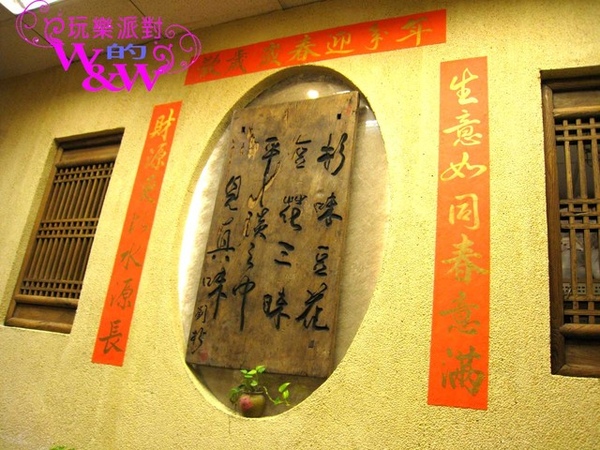 玩樂派對
的
W&W
年年迎春歲歲
生意如同春意滿
財源水源長
杉味豆花
花三昧
平淡之中
見真味